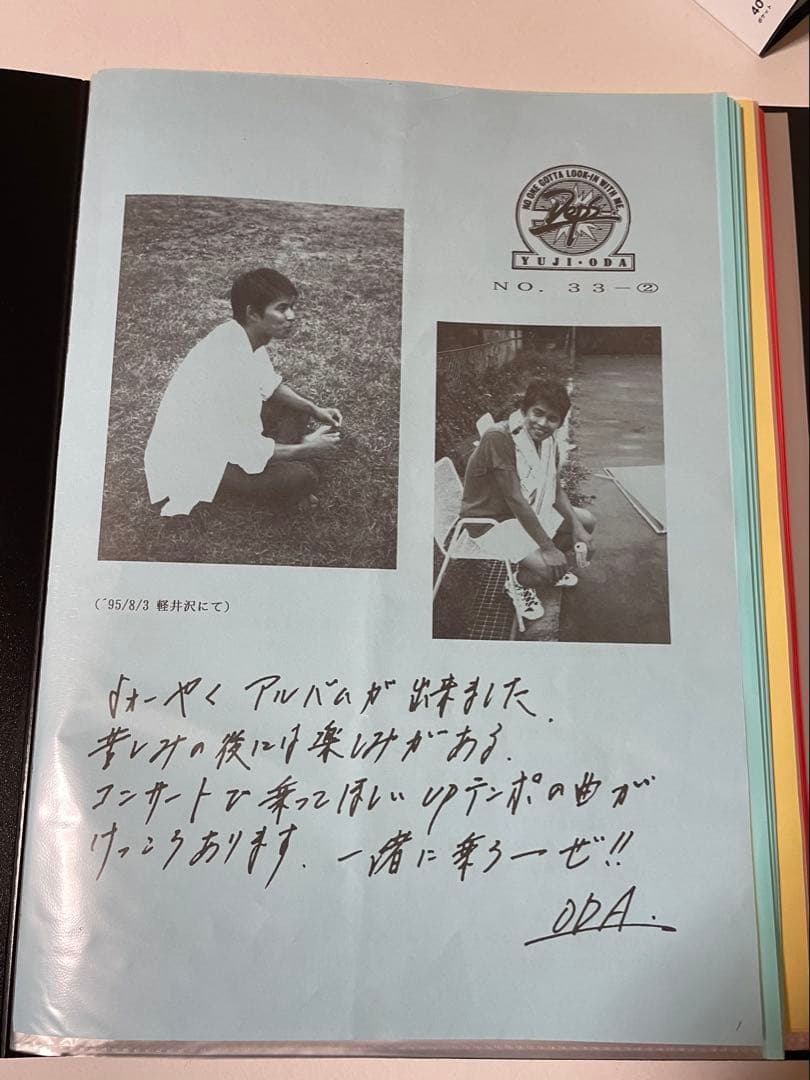 40
ポケット
NO ONE GOTTA LOOK-IN WITH ME.
YUJI・ODA
NO. 33－②
(´95/8/3 軽井沢にて)
よーやく アルバムが 出来ました.
苦しみの後には楽しみがある.
コンサートで 乗ってほしい upテンポの曲が
けっこうあります. 一緒に乗ろーぜ!!
ODA.
1